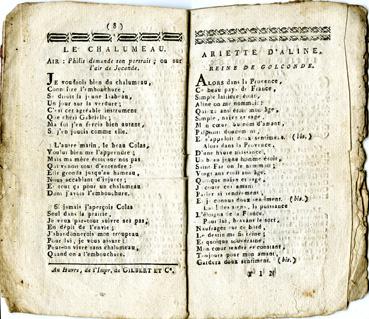 (8)
LE CHALUMEAU.
AIR : Philis demande son portrait; ou sur
l'air de Joconde.
JE voudrois bien du chalumeau,
Connoître l'embouchure,
Si disoit la jeune Isabeau,
Un jour sur la verdure;
C'est cet agréable instrument
Que chérit Gabrielle;
Ma foi j'en ferois bien autant,
Si j'en jouois comme elle.
L'autre matin, le beau Colas
Voulut bien me l'apprendre;
Mais ma mère étoit sur nos pas
Qui venoit tout d'entendre:
Elle gronda jusqu'au hameau,
Nous accablant d'injures;
Et tout ça pour un chalumeau
Dont j'avois l'embouchure.
Si jamais j'aperçois Colas
Seul dans la prairie,
Je veux par-tout suivre ses pas,
En dépit de l'envie;
J'abandonnerois mon troupeau
Pour lui, je vous assure:
Peut-on vivre sans chalumeau,
Quand on a l'embouchure.
Au Havre, de l'Impr. de GILBERT ET Cie.
ARIETTE D'ALINE,
REINE DE GOLCONDE.
ALORS dans la Provence,
Ce beau pays de France,
Simple laitière étoit,
Aline on me nommoit:
Quinze ans étoit mon âge,
Simple, naïve et sage,
Mon cœur, autour d'amant,
doucement,
E s'appeloit doux sentiment. (bis.)
Alors dans la Provence,
D'une haute naissance,
Un beau jeune homme étoit,
Saint Far on le nommoit;
Vingt ans étoit son âge,
Quoique naïve et sage,
J'écoutai cet amant
Parler si tendrement,
Et je connus doux sentiment. (bis.)
Loin des siens, la puissance
L'éloigna de la France.
Pour lui, bravant le sort,
Naufragée sur ce bord,
Le destin me fit reine;
Et quoique souveraine,
Mon cœur tendre et constant,
Toujours pour mon amant,
Gardera doux sentiment. (bis.)
F I N